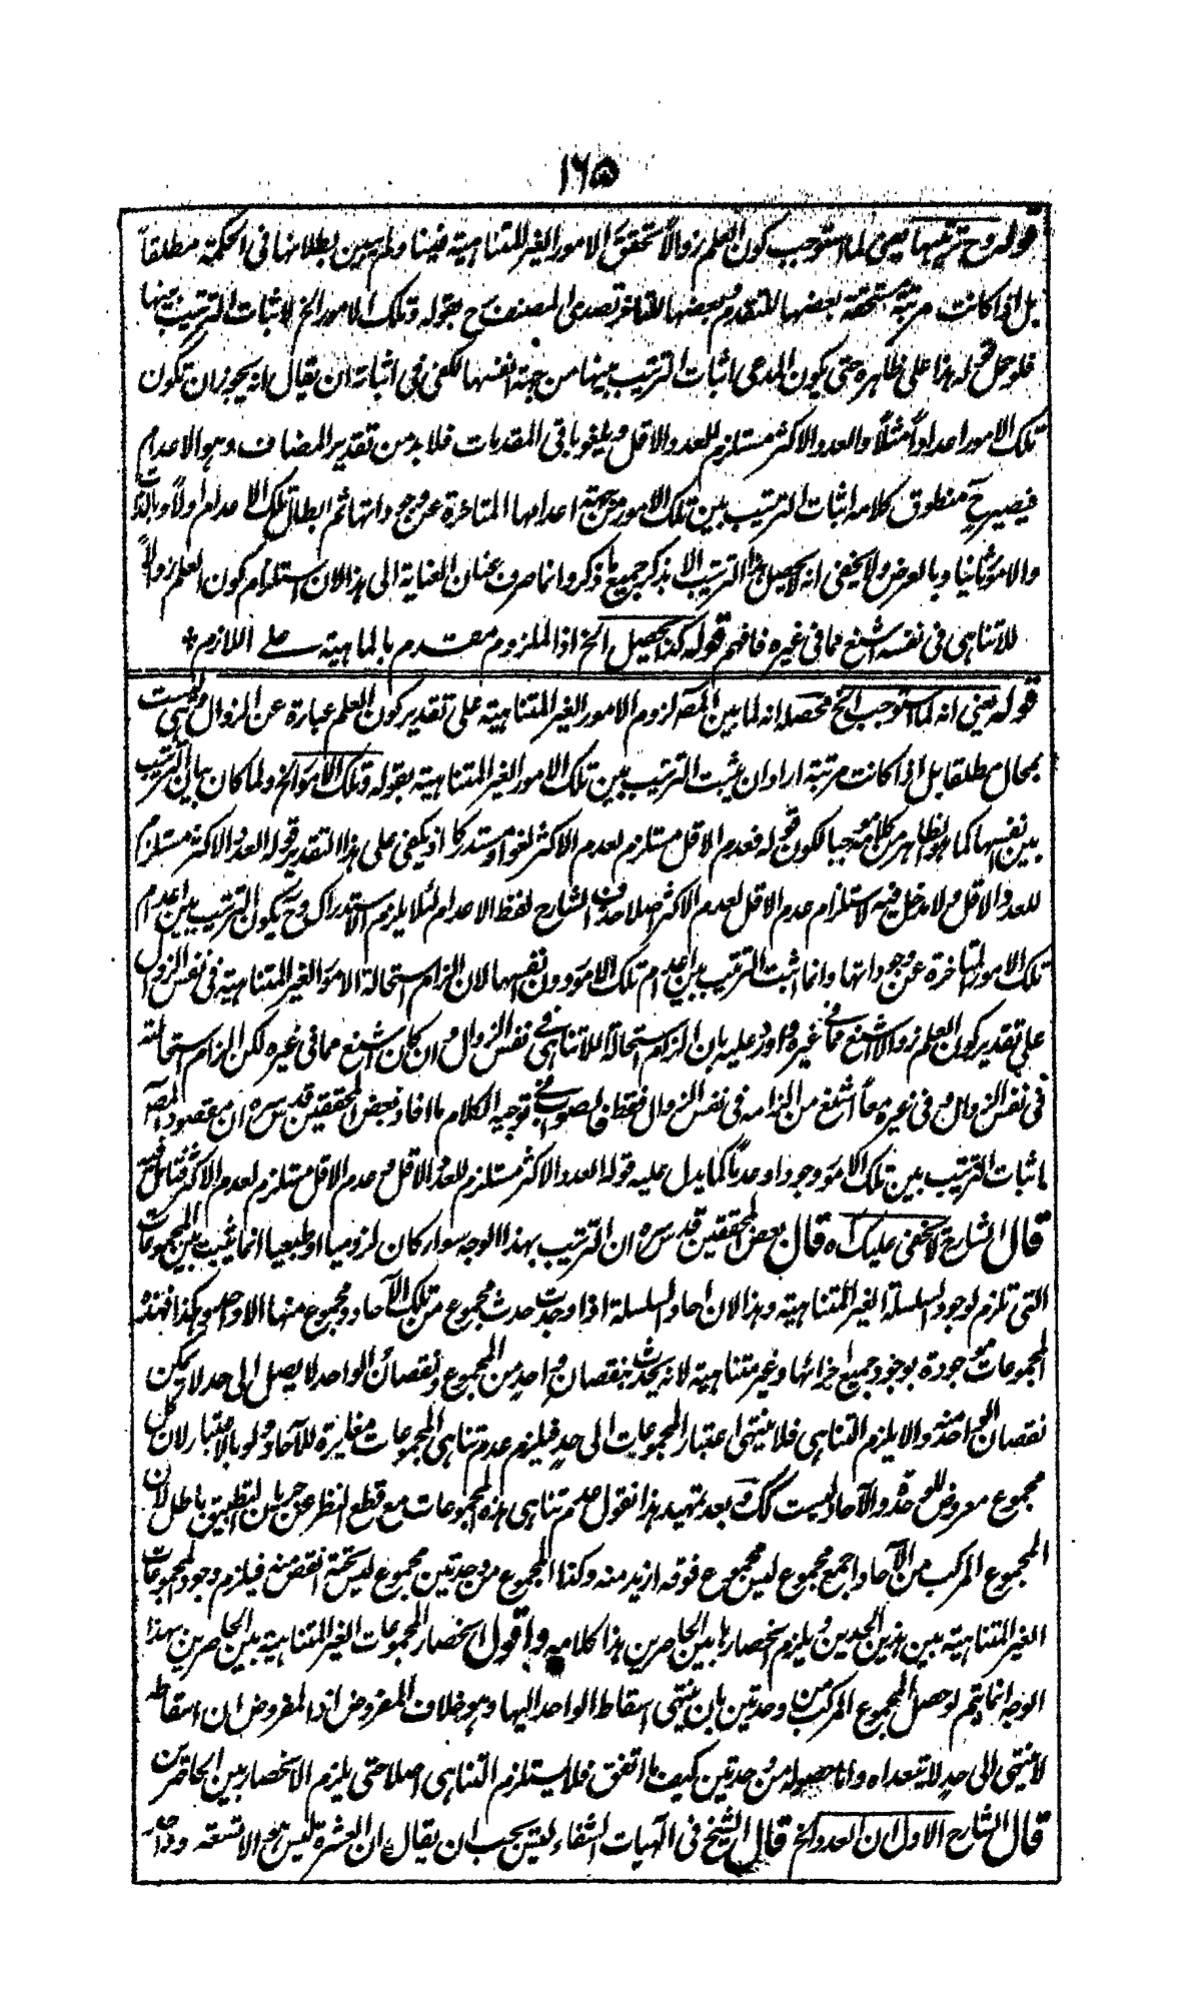 ١٦٥
قوله وح ترتبها يعني لما استوجب كون العلم زوالا تحقق الامور الغير المتناهية فينا ولم يبين بطلانها في الحكمة مطلقا
بل اذا كانت مرتبة متحققة بعضها المتقدم وبعضها المتاخر تصدى المصنف ح بقوله وتلك الامور الخ لاثبات الترتيب بينها
فلو حمل قوله هذا على ظاهره حتى يكون المدعى اثبات الترتيب بينها من جهة انفسها لكفى في اثباته ان يقال انه يجوز ان تكون
تلك الامور اعدادا مثلا والعدد الاكثر مستلزم للعدد الاقل ويلغو باقي المقدمات فلا بد من تقدير المضاف وهو الاعدام
فيصير ح منطوق كلامه اثبات الترتيب بين تلك الامور من جهة اعدامها المتاخرة عن وجوداتها ثم ابطال تلك الاعدام اولا وبالذات
والامور ثانيا وبالعرض ولا يخفى انه لا يحصل هذا الترتيب الا بذكر جميع ما ذكر وانما صرف عنان العناية الى هذا لان استلزام كون العلم زوالا
للاتناهي في نفسه اشنع مما في غيره فافهم قوله كذا يحصل الخ اذ الملزوم مقدم بالماهية على اللازم
قوله يعني انه لما استوجب الخ محصله انه لما بين المصـ لزوم الامور الغير المتناهية على تقدير كون العلم عبارة عن الزوال وهي ليست
بمحال مطلقا بل اذا كانت مرتبة اراد ان يثبت الترتيب بين تلك الامور الغير المتناهية بقوله وتلك الامور الخ ولما كان بيان الترتيب
بين انفسها كما هو الظاهر من كلامه موجبا لكون قوله فعدم الاقل مستلزم لعدم الاكثر لغوا ومستدركا اذ يكفي على هذا التقدير قوله العدد الاكثر مستلزم
للعدد الاقل ولا دخل فيه لاستلزام عدم الاقل لعدم الاكثر اصلا حذف الشارح لفظ الاعدام لئلا يلزم الاستدراك وح يكون الترتيب بين اعدام
تلك الامور المتاخرة عن وجوداتها وانما اثبت الترتيب بين اعدام تلك الامور دون انفسها لان الزام استحالة الامور الغير المتناهية في نفس الزوال
على تقدير كون العلم زوالا اشنع مما في غيره واورد عليه بان الزام استحالة اللاتناهي في نفس الزوال وان كان اشنع مما في غيره لكن الزام استحالته
في نفس الزوال وفي غيره معا اشنع من الزامه في نفس الزوال فقط فالصواب في توجيه الكلام ما افاد بعض المحققين قدس سره ان مقصود المصـ
اثبات الترتيب بين تلك الامور وجودا وعدما كما يدل عليه قوله العدد الاكثر مستلزم للعدد الاقل وعدم الاقل مستلزم لعدم الاكثر فتامل فيه
قال الشارح لا يخفى عليك اه قال بعض المحققين قدس سره ان الترتيب بهذا الوجه سواء كان لزوميا او طبعيا انما يثبت بين المجموعات
التي تلزم لوجود السلسلة الغير المتناهية وهذا لان احاد السلسلة اذا وجدت حدث مجموع من تلك الآحاد ومجموع منها الا واحد وهكذا فهذه
المجموعات موجودة بوجود جميع اجزائها وغير متناهية لانه يحدث بنقصان واحد من المجموع ونقصان الواحد لا يصل الى حد لا يمكن
نقصان الواحد منه والا يلزم التناهي فلا ينتهي اعتبار المجموعات الى حد فيلزم عدم تناهي المجموعات مغايرة للآحاد ولو بالاعتبار لان كل
مجموع معروض للوحدة والآحاد ليست كك وبعد تمهيد هذا نقول عدم تناهي هذه المجموعات مع قطع النظر عن جريان التطبيق باطل لان
المجموع المركب من الآحاد اجمع مجموع ليس مجموع فوقه ازيد منه وكذا المجموع من وحدتين مجموع ليس تحته انقص منه فيلزم وجود المجموعات
الغير المتناهية بين هذين الحدين ويلزم انحصارها بين الحاصرين هذا كلامه واقول انحصار المجموعات الغير المتناهية بين الحاصرين بهذا
الوجه انما يتم لو حصل المجموع المركب من وحدتين بان ينتهي اسقاط الواحد اليها وهو خلاف المفروض اذ المفروض ان اسقاطه
لا ينتهي الى حد لا يتعداه واما حصوله من وحدتين كيف ما اتفق فلا يستلزم التناهي اصلا حتى يلزم الانحصار بين الحاصرين
قال الشارح الاول ان العدد الخ قال الشيخ في الهيات الشفاء ليس يجب ان يقال ان العشرة ليس الا تسعة وواحد